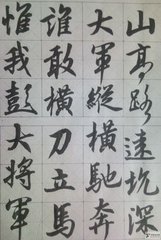 山高路遠坑深
大軍縱橫馳奔
誰敢橫刀立馬
惟我彭大將軍